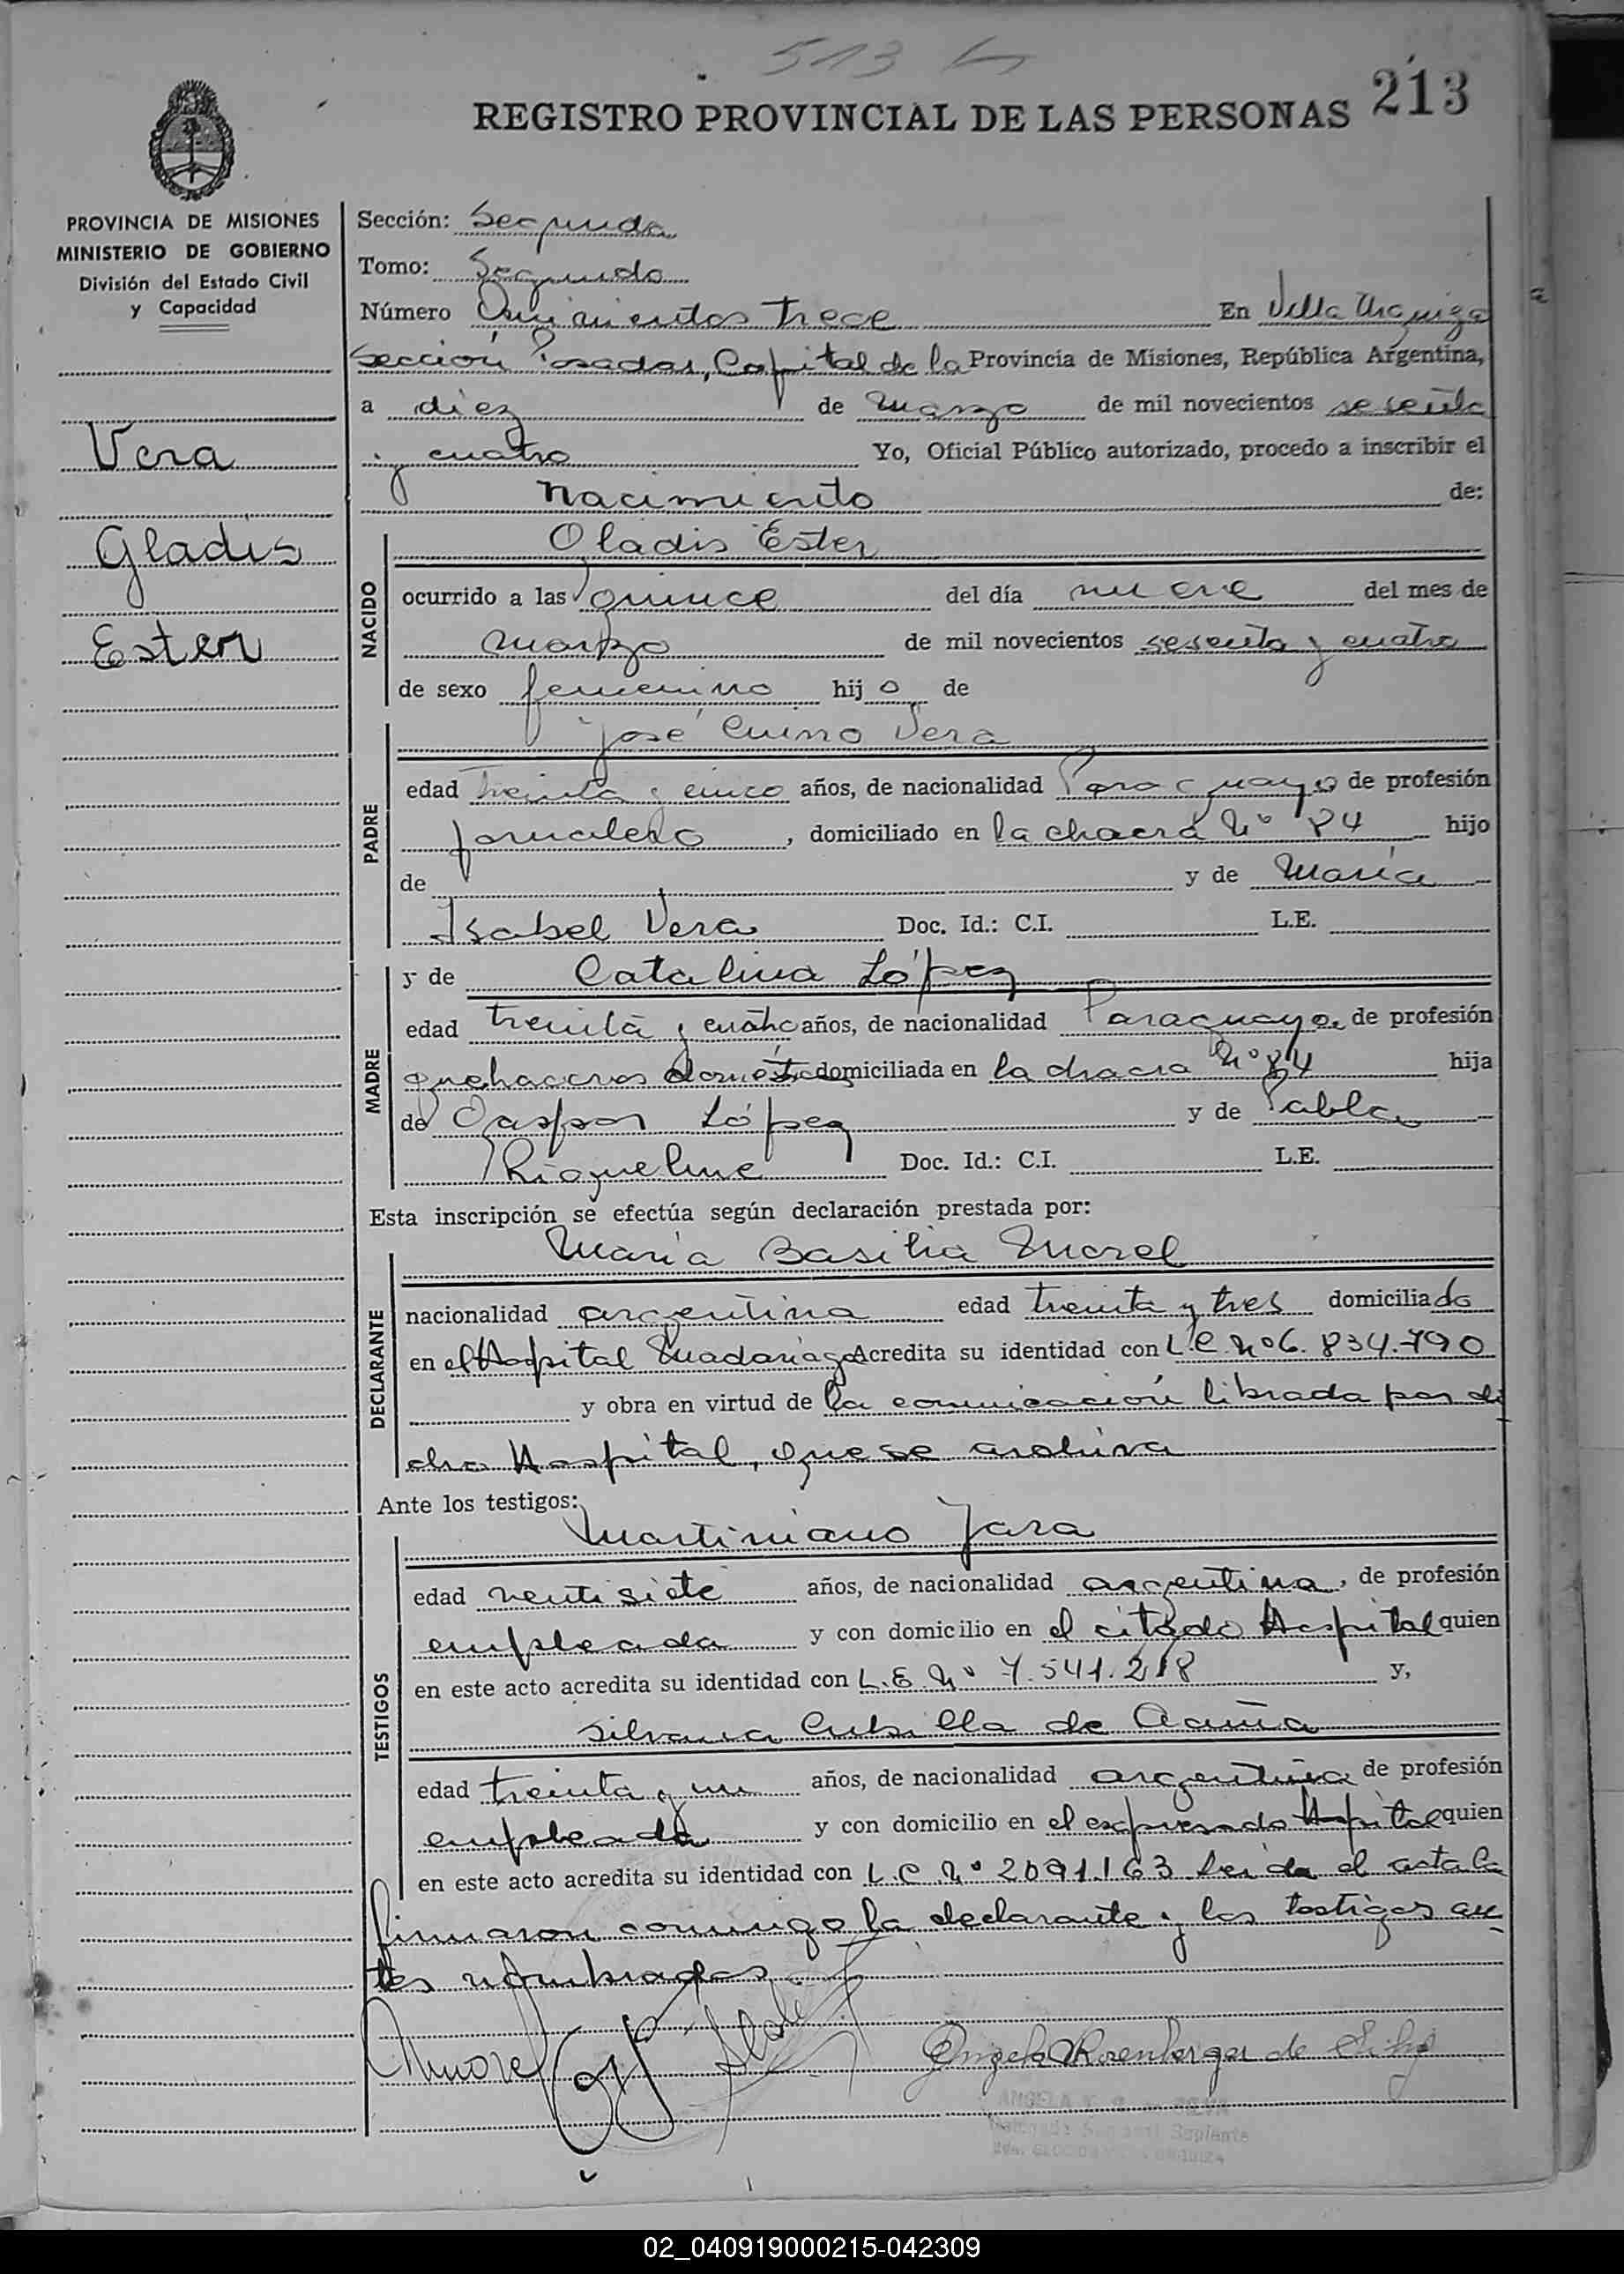 513
REGISTRO PROVINCIAL DE LAS PERSONAS 213
PROVINCIA DE MISIONES
MINISTERIO DE GOBIERNO
División del Estado Civil
y Capacidad
Vera
Gladis
Ester
Sección: Segunda
Tomo: Segundo
Número Quinientos trece En Villa Urquiza
Sección Posadas, Capital de la Provincia de Misiones, República Argentina,
a diez de Marzo de mil novecientos sesenta
y cuatro Yo, Oficial Público autorizado, procedo a inscribir el
nacimiento de:
NACIDO
Gladis Ester
ocurrido a las quince del día nueve del mes de
marzo de mil novecientos sesenta y cuatro
de sexo femenino hijo de
PADRE
José Vera
edad treinta y cinco años, de nacionalidad Paraguayo de profesión
jornalero, domiciliado en la chacra Nº 84 hijo
de y de María
Isabel Vera Doc. Id.: C.I. L.E.
MADRE
y de Catalina López
edad treinta y cuatro años, de nacionalidad Paraguaya de profesión
quehaceres domésticos domiciliada en la chacra Nº 84 hija
de Gaspar López y de Pabla
Riquelme Doc. Id.: C.I. L.E.
Esta inscripción se efectúa según declaración prestada por:
DECLARANTE
María Basilia Morel
nacionalidad argentina edad treinta y tres domiciliado
en el Hospital Madariaga Acredita su identidad con L.C. Nº 6.834.790
y obra en virtud de la comunicación librada por di
cho Hospital, que se archiva
Ante los testigos:
TESTIGOS
Martiniano Jara
edad veintisiete años, de nacionalidad argentina, de profesión
empleada y con domicilio en el citado Hospital quien
en este acto acredita su identidad con L.E. Nº 7.541.218 y,
Silvana Cubilla de Acuña
edad treinta y un años, de nacionalidad argentina de profesión
empleada y con domicilio en el expresado Hospital quien
en este acto acredita su identidad con L.C. Nº 2091.163 Leida el acta la
firmaron conmigo la declarante y los testigos an
tes nombrados
Morel
Angela Rosenberger de Silva
Suplente
02_040919000215-042309